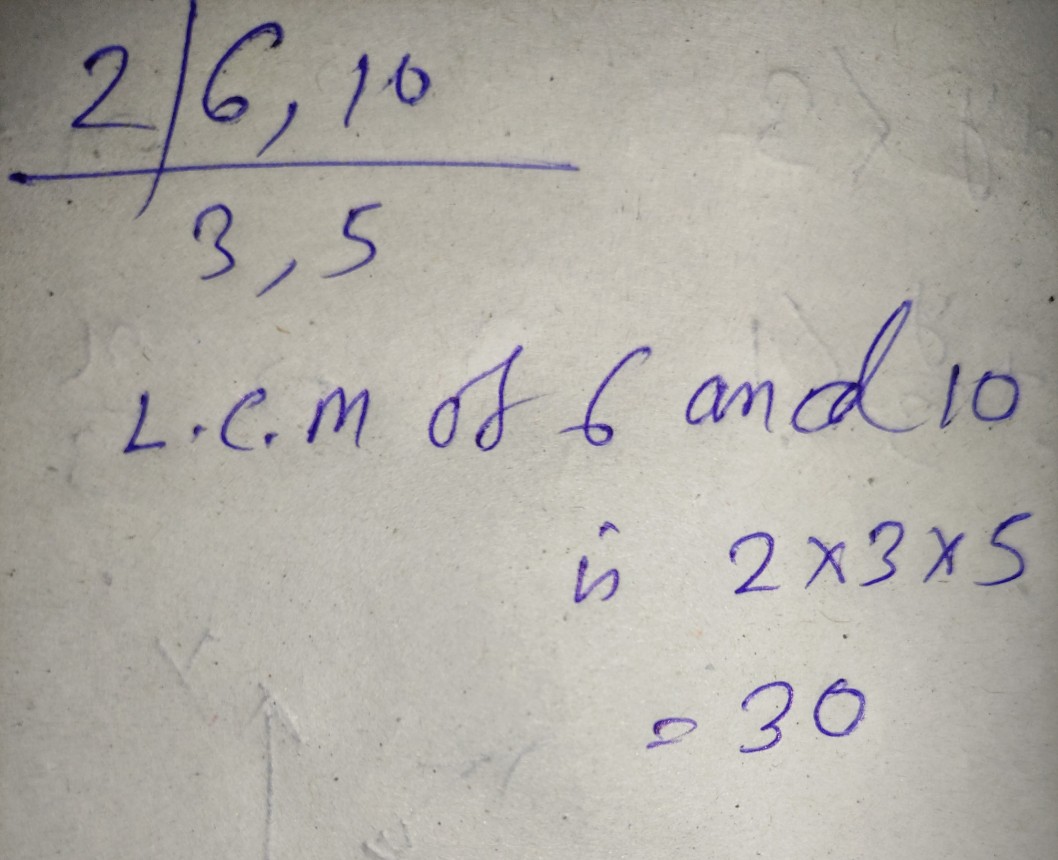 2 6, 10
3, 5
L.C.M of 6 and 10
is 2×3×5
= 30